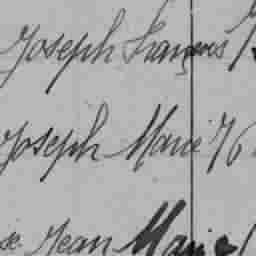 Joseph François
Joseph Marie 76
Jean Marie